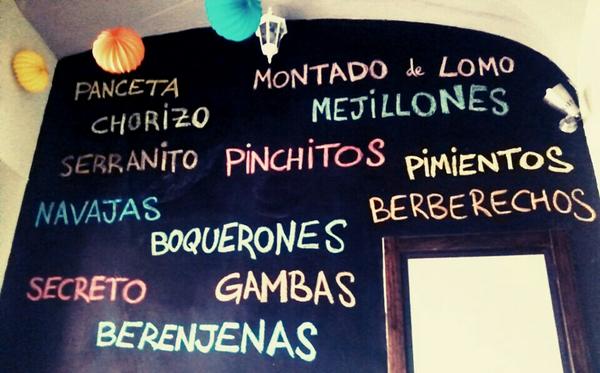 PANCETA
MONTADO de LOMO
CHORIZO
MEJILLONES
SERRANITO
PINCHITOS
PIMIENTOS
NAVAJAS
BERBERECHOS
BOQUERONES
SECRETO
GAMBAS
BERENJENAS